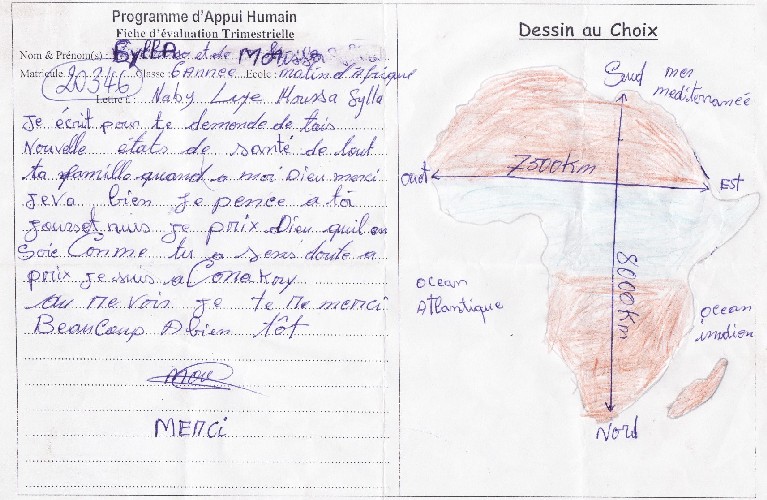 Programme d'Appui Humain
Fiche d'évaluation Trimestrielle
Nom & Prénom(s) : Sylla et de Moussa
Matricule 20346 Classe 6 Année Ecole : matin d'Afrique
Lettre : Naby Laye Moussa Sylla
Je écrit pour te demende de tais
Nouvelle états de santé de tout
ta famille quand a moi Dieu merci
Jeva bien je pence a toi
joursetnuis je prix Dieu quil en
Soie Comme tu a sens doute a
prix Je suis a Conakry
au Revois je te Remerci
Beaucoup A bien tôt
MERCI
Dessin au Choix
Sud
mer
mediterranée
7500Km
Ouet
EST
8000Km
Ocean
Atlantique
Ocean
indien
Nord